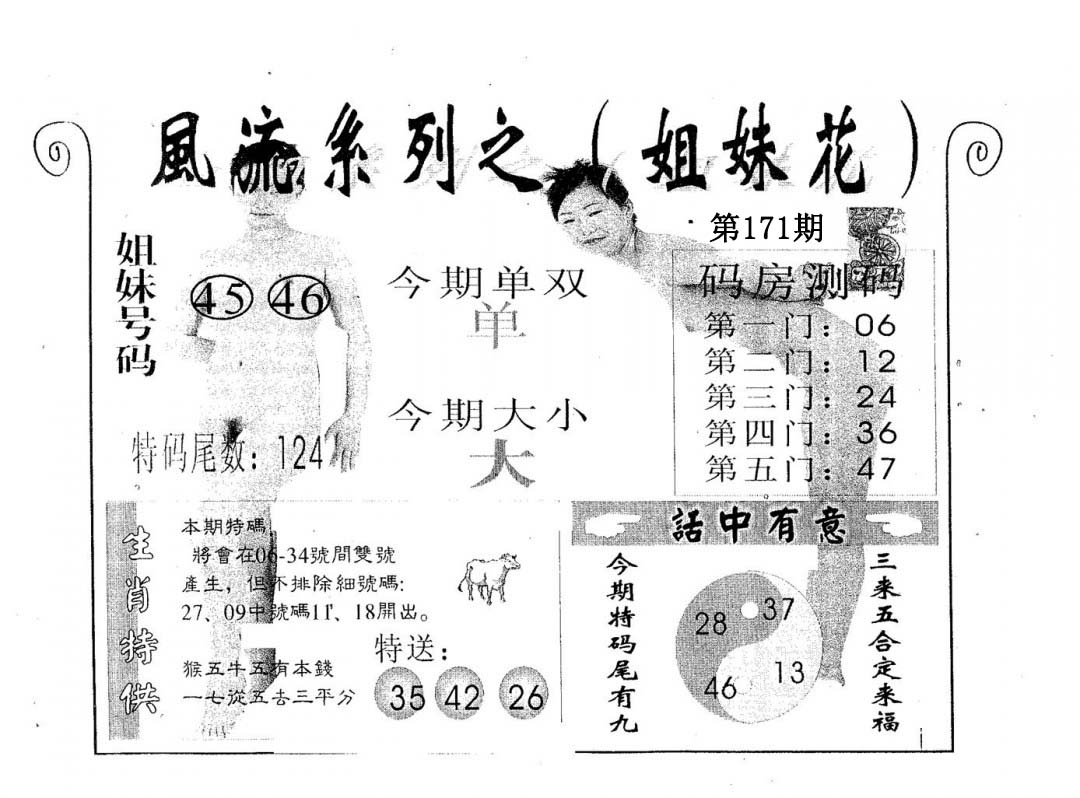 風流系列之（姐妹花）
第171期
姐妹号码
45 46
今期单双
单
今期大小
大
特码尾数：124
码房测码
第一门：06
第二门：12
第三门：24
第四门：36
第五门：47
生肖特供
本期特碼
將會在06-34號間雙號
產生，但不排除細號碼:
27、09中號碼11、18開出。
猴五牛五有本錢
一七從五去三平分
特送：
35 42 26
話中有意
今期特码尾有九
28 37
46 13
三来五合定来福